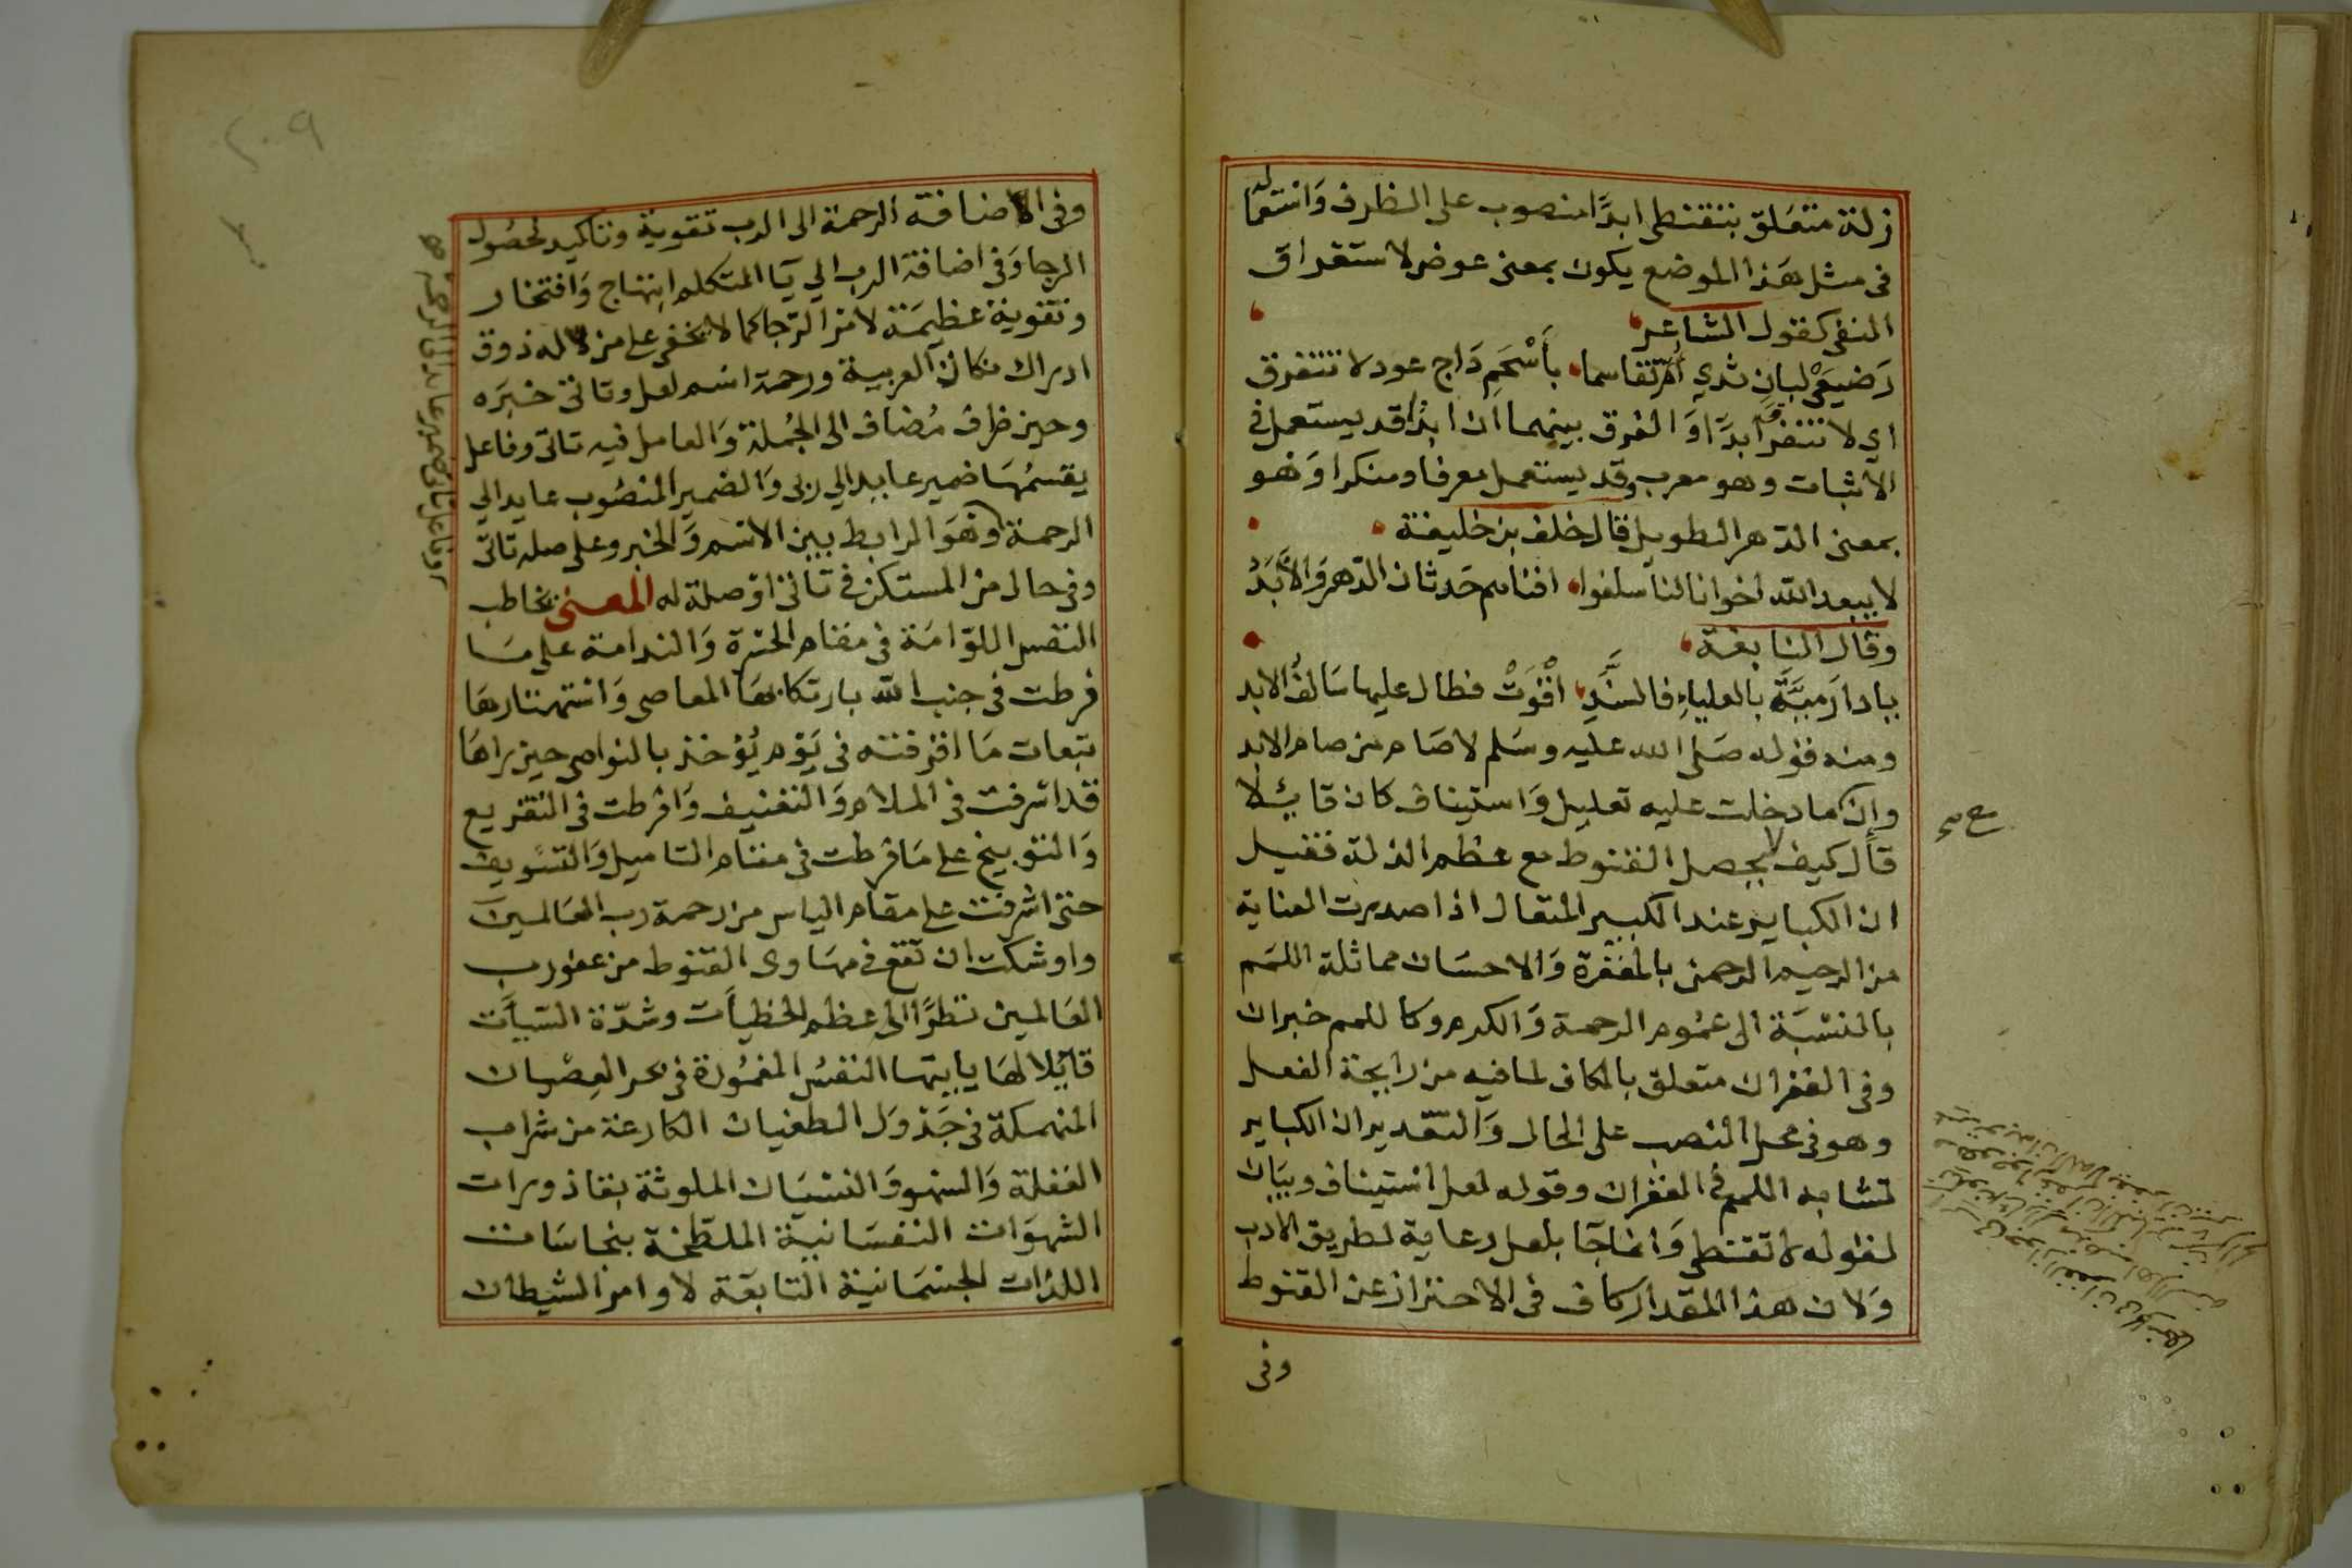 زلة متعلق بتقنطي ابدًا منصوب على الظرف وَاستعماله
في مثل هَذا الموضع يكون بمعنى عوض لاستغراق
النفي كقول الشاعر
رَضيعَيْ لبانٍ ثدي اُمّ تقاسما بأَسْحَمِ دَاج عوض لا نتفرق
اي لا نتفرق ابدًا وَالفرق بينهما ان ابدًا قد يستعمل في
الاثبات وهو معرب وقد يستعمل معرفا ومنكرا وَهو
بمعنى الدّهر الطويل قال خلف بن خليفة
لا يبعد الله اخوانا لنا سلفوا افناهم حَدثان الدّهر وَالاَبَدُ
وقال النابغة
يا دارَ ميَّةَ بالعلياءِ فالسنَّدِ اقْوَتْ فطال عليها سَالفُ الابد
ومنه قوله صَلى الله عليه وسَلم لا صَام من صام الابد
وإن ما دخلت عليه تعليل وَاستيناف كان قائلا
قال كيف لا يحصل القنوط مع عظم الزلة فقيل
ان الكباير عند الكبير المتعال اذا صدرت العناية
من الرحيم الرحمن بالمغفرة وَالاحسَان مماثلة اللمَم
بالنسْبَة الى عمُوم الرحمة وَالكرم وكاللمم خبران
وفي الغفران متعلق بالكاف لما فيه من رايحة الفعل
وهو في محل النصب على الحال وَالتقدير ان الكباير
تشابه اللمم في الغفران وقوله لعل استيناف وبيَان
لقوله لا تقنطي وَانما جآ بلعل رعاية لطريق الادب
وَلان هذا المقدار كاف في الاحتراز عن القنوط
وفي
وفي الاضافة الرحمة الى الرب تقوية وتاكيد لحصُول
الرجا وَفي اضافة الرب الي يآ المتكلم ابتهاج وَافتخار
وتقوية عظيمَة لامر الرّجا كما لا يخفى على من له ذوق
ادراك نكات العربية ورحمة اسم لعل وتاتي خبَره
وحين ظرف مُضاف الى الجُملة وَالعامل فيه تاتي وفاعل
يقسمُهَا ضمير عايد الي ربي وَالضمير المنصُوب عايد الي
الرحمة وهُوَ الرابط بين الاسْم وَالخبر وعلى صله تاتي
وفي حال من المستكن في تاتي اوْ صلة له المعنى يخاطب
النفس اللوّامَة في مقام الحسرة وَالندامة على مَا
فرطت في جنب الله بارتكابهَا المعاصي وَاستهتارهَا
تبعات مَا اقترفته في يَوْم يُؤخذ بالنواصي حين يراهَا
قد اسرفت في الملام وَالتعنيف وَافرطت في التقريع
وَالتوبيخ على مَا فرطت في مقام التاميل وَالتسْويف
حتى اشرفت على مقام الياس من رحمة رب العَالمين
واوشكت ان تقع في مهَاوى القنوط من عفو رب
العَالمين نظرًا الى عظم الخطيآت وشدّة السّيآت
قائلا لهَا يا يتها النفسُ المغمُورة في بحر العِصْيان
المنهمكة في جَدْوَل الطغيان الكارعة من شراب
الغفلة وَالسهو وَالنسْيَان الملوثة بقاذورات
الشهوَات النفسَانية الملطخة بنجاسَات
اللذات الجسْمَانية التابعَة لاوامر الشيطان
٢٠٩